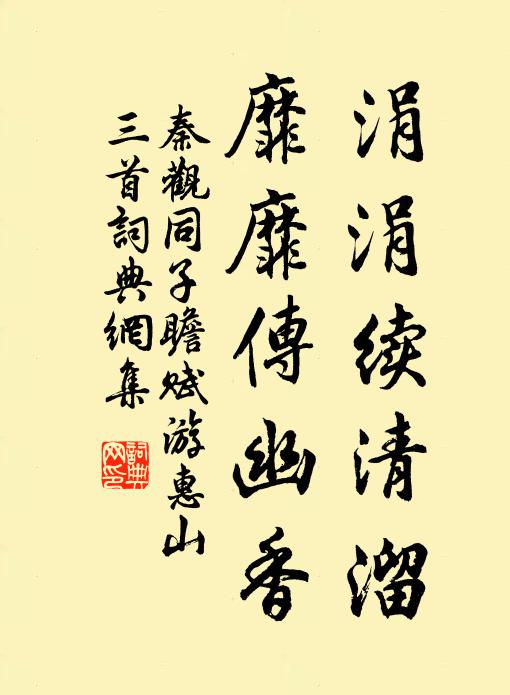 涓涓续清溜
靡靡傳幽香
秦觀同子瞻赋游惠山
三首詞典網集
詞典
网印